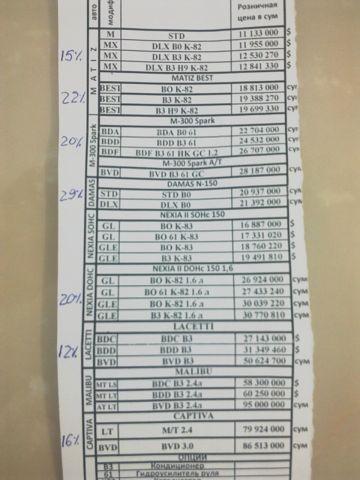 авто модиф Розничная
цена в сум
15% МАТИЗ M STD 11 133 000 $
MX DLX B0 K-82 11 955 000 $
MX DLX B3 K-82 12 530 270 $
MX DLX B3 H9 K-82 12 841 330 $
MATIZ BEST
22% BEST BO K-82 18 813 000 сум
BEST B3 K-82 19 388 270 сум
BEST B3 H9 K-82 19 699 330 сум
M-300 Spark
20% M-300 Spark BDA BDA B0 61 22 704 000 сум
BDD BDD B3 61 24 532 000 сум
BDF BDF B3 61 HK GC 1.2 26 707 000 сум
M-300 Spark A/T
BVD BVD B3 61 GC 28 187 000 сум
DAMAS N-150
29% DAMAS STD STD B0 20 937 000 сум
DLX DLX B0 21 392 000 сум
NEXIA II SOHc 150
NEXIA SOHC GL BO K-83 16 887 000 $
GL BO 61 K-83 17 331 020 $
GLE BO K-83 18 760 220 $
GLE B3 K-83 19 491 810 $
NEXIA II DOHc 150 1,6
20% NEXIA DOHC GL BO K-82 1.6 л 26 924 000 сум
GL BO 61 K-82 1.6 л 27 433 240 сум
GLE BO K-82 1.6 л 30 039 220 сум
GLE B3 K-82 1.6 л 30 770 810 сум
LACETTI
12% LACETTI BDC BDC B3 27 143 000 $
BDD BDD B3 31 349 460 $
BVD BVD B3 50 624 700 сум
MALIBU
MALIBU MT LS BDC B3 2.4л 58 300 000 $
MT LT BDD B3 2.4л 60 250 000 $
AT LT BVD B3 2.4л 95 000 000 сум
CAPTIVA
16% CAPTIVA LT M/T 2.4 79 924 000 сум
BVD BVD 3.0 86 513 000 сум
ОПЦИИ
B3 Кондиционер
61 Гидроусилитель руля